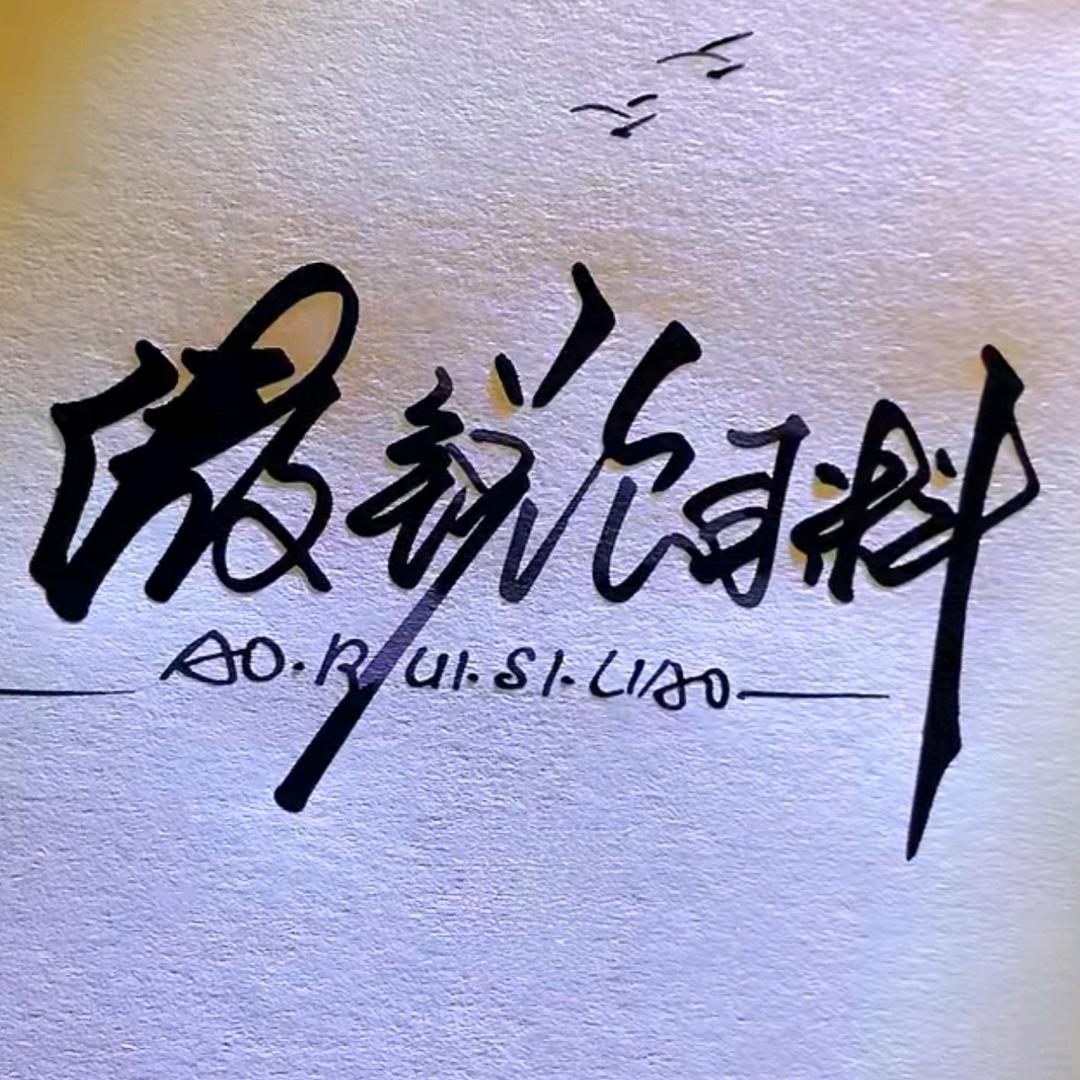 傲锐饲料
AO.RUI.SI.LIAO